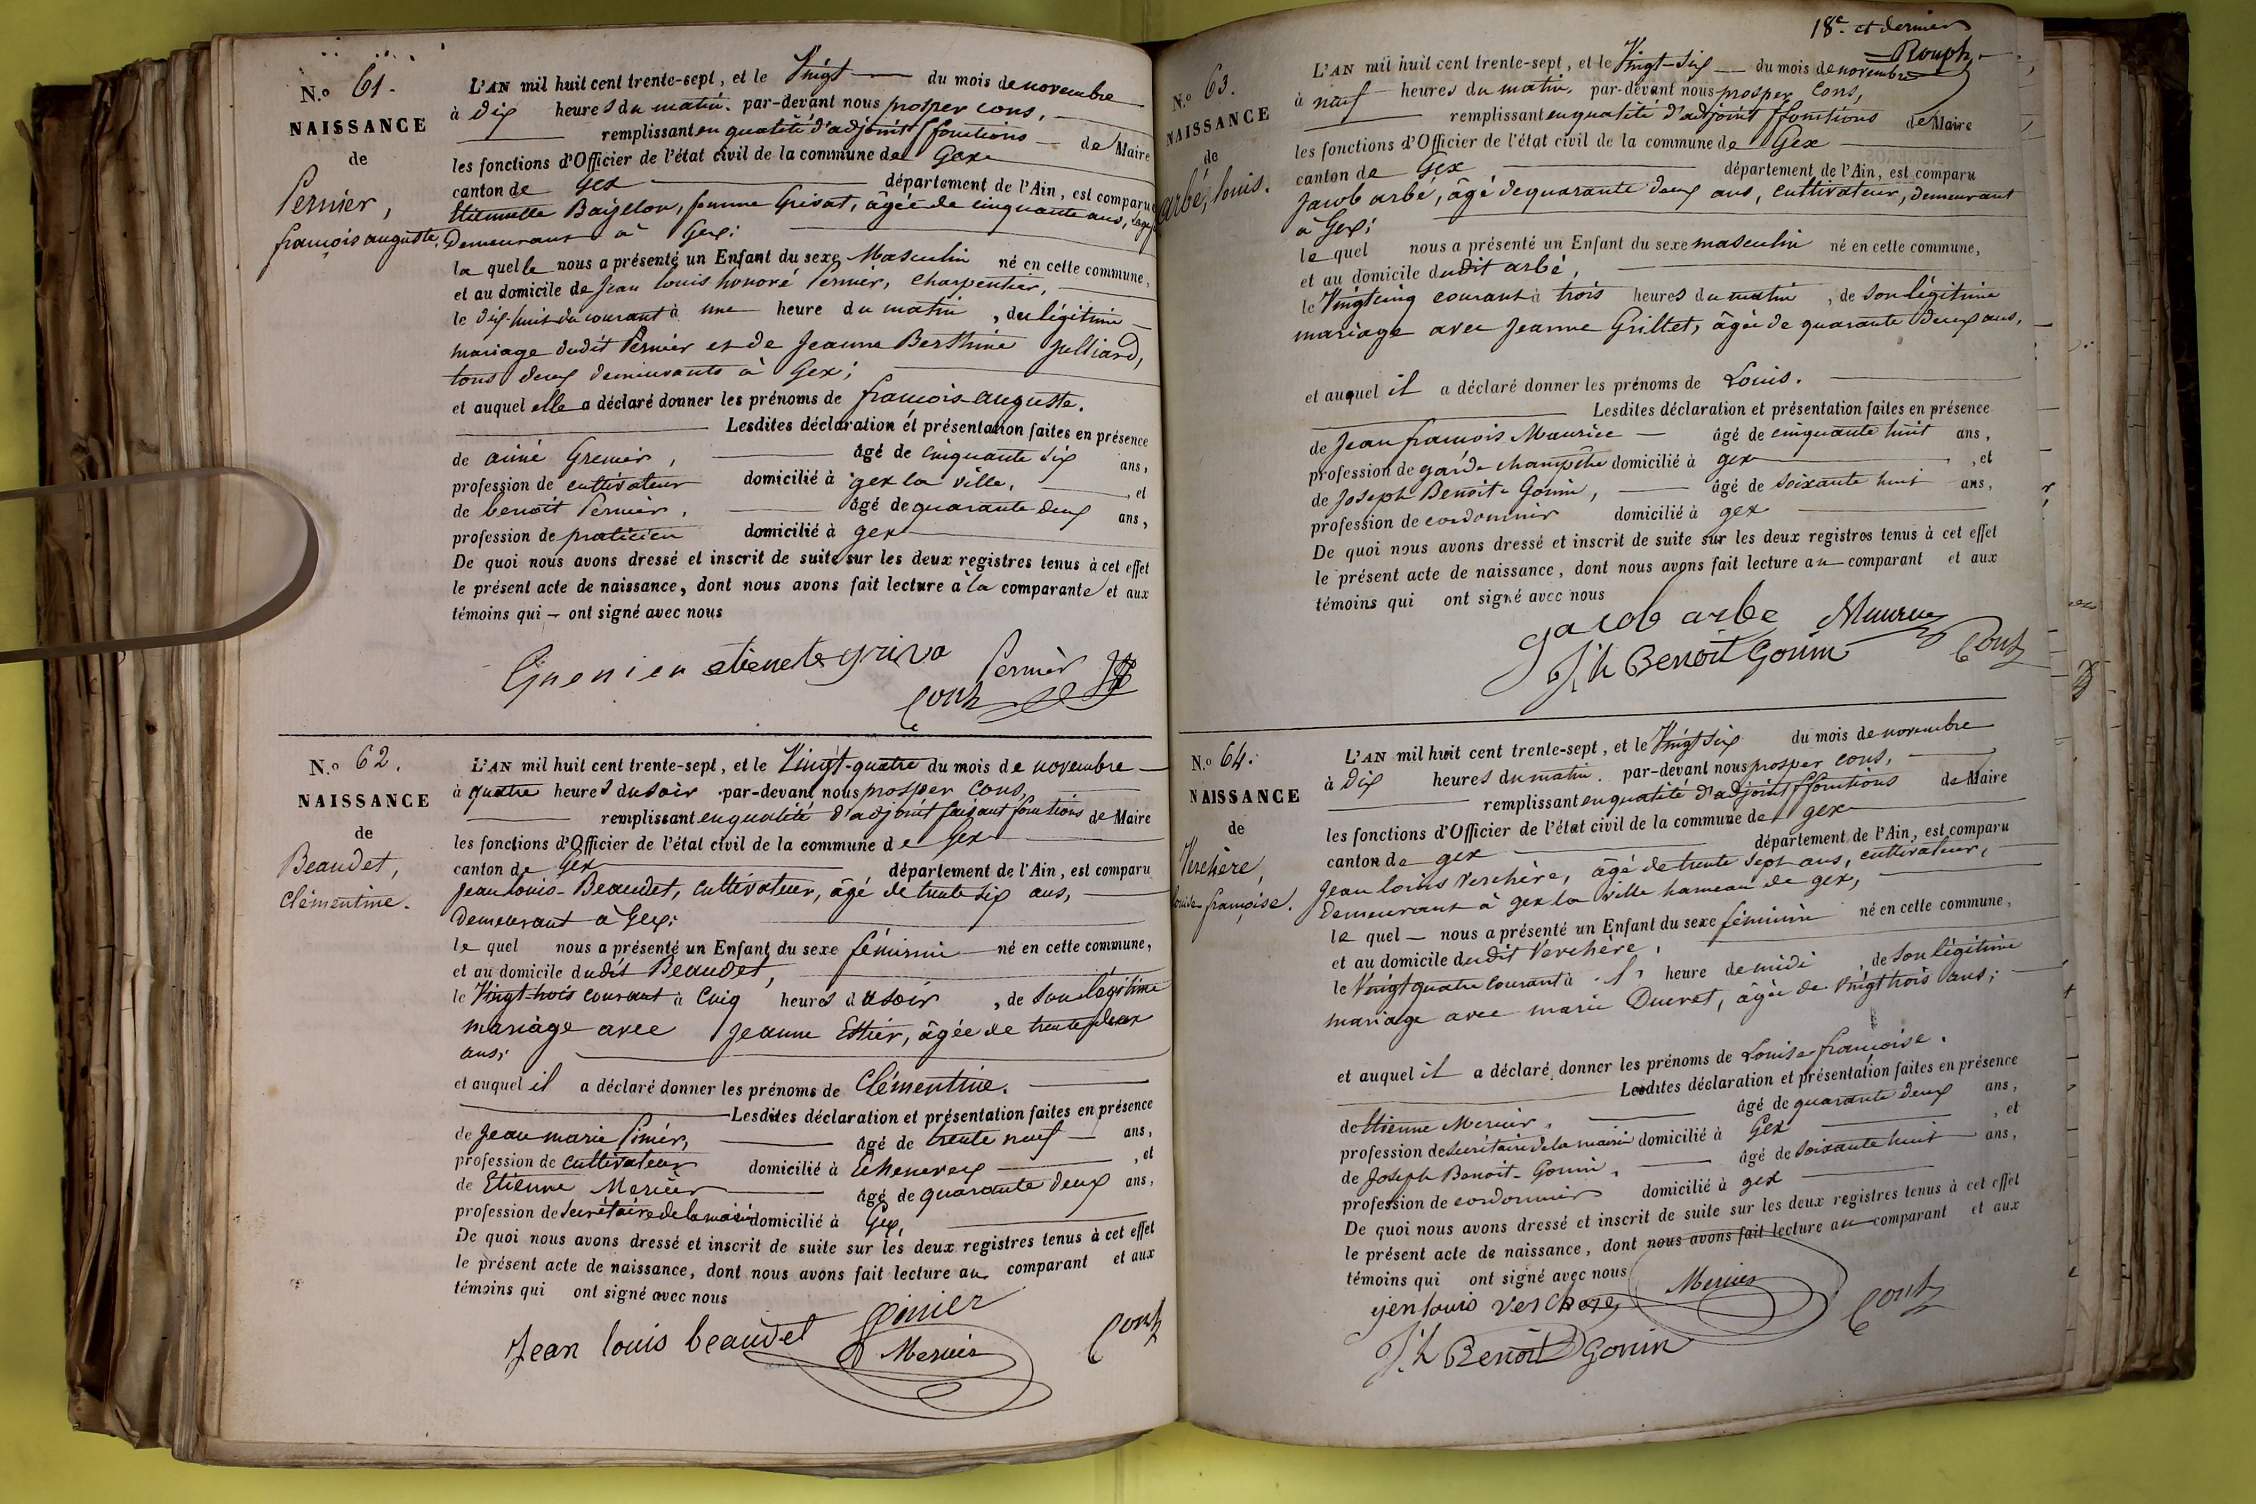 N.o 61.
NAISSANCE
de
Pernier,
françois auguste.
L'AN mil huit cent trente-sept, et le Vingt du mois de novembre
à dix heures du matin. par-devant nous prosper cons,
remplissant en qualité d'adjoint ffonctions de Maire
les fonctions d'Officier de l'état civil de la commune de Gex
canton de Gex département de l'Ain, est comparue
Etiennette femme Grivat, âgée de cinquante ans,
Demeurant à Gex;
la quelle nous a présenté un Enfant du sexe Masculin né en cette commune,
et au domicile de Jean louis honoré Pernier, charpentier,
le dix-huit du courant à une heure du matin, du légitime
mariage dudit Pernier et de Jeanne Berthine Julliard,
tous deux demeurants à Gex;
et auquel elle a déclaré donner les prénoms de françois auguste.
Lesdites déclaration et présentation faites en présence
de aimé Grenier, âgé de cinquante six ans,
profession de cultivateur domicilié à gex la ville, et
de benoit Pernier, âgé de quarante deux ans,
profession de praticien domicilié à gex
De quoi nous avons dressé et inscrit de suite sur les deux registres tenus à cet effet
le présent acte de naissance, dont nous avons fait lecture à la comparante et aux
témoins qui ont signé avec nous
Grenier etienete griva Pernier
Cons
N.o 62.
NAISSANCE
de
Beaudet,
Clémentine.
L'AN mil huit cent trente-sept, et le Vingt-quatre du mois de novembre
à quatre heures du soir par-devant nous prosper cons,
remplissant en qualité d'adjoint faisant fonctions de Maire
les fonctions d'Officier de l'état civil de la commune de Gex
canton de Gex département de l'Ain, est comparu
Jean louis Beaudet, cultivateur, âgé de trente six ans,
demeurant à Gex;
le quel nous a présenté un Enfant du sexe féminin né en cette commune,
et au domicile dudit Beaudet,
le Vingt trois courant à Cinq heures du soir, de son légitime
mariage avec Jeanne Estier, âgée de trente deux
ans;
et auquel il a déclaré donner les prénoms de Clémentine.
Lesdites déclaration et présentation faites en présence
de Jean marie Pinier, âgé de trente neuf ans,
profession de cultivateur domicilié à Echenevex, et
de Etienne Mercier âgé de quarante deux ans,
profession de secrétaire de la mairie domicilié à Gex,
De quoi nous avons dressé et inscrit de suite sur les deux registres tenus à cet effet
le présent acte de naissance, dont nous avons fait lecture au comparant et aux
témoins qui ont signé avec nous
Jean louis beaudet Pinier
Mercier Cons
18e et dernier
Rouph
N.o 63.
NAISSANCE
de
arbé, louis.
L'AN mil huit cent trente-sept, et le Vingt-six du mois de novembre
à neuf heures du matin, par-devant nous prosper Cons,
remplissant en qualité d'adjoint ffonctions de Maire
les fonctions d'Officier de l'état civil de la commune de Gex
canton de Gex département de l'Ain, est comparu
Jacob arbé, âgé de quarante deux ans, cultivateur, demeurant
à Gex;
le quel nous a présenté un Enfant du sexe masculin né en cette commune,
et au domicile dudit arbé,
le Vingt cinq courant à trois heures du matin, de son légitime
mariage avec Jeanne Grillet, âgée de quarante deux ans,
et auquel il a déclaré donner les prénoms de Louis.
Lesdites déclaration et présentation faites en présence
de Jean françois Maurice âgé de cinquante huit ans,
profession de garde champêtre domicilié à gex, et
de Joseph Benoit-Gonin, âgé de soixante huit ans,
profession de cordonnier domicilié à gex
De quoi nous avons dressé et inscrit de suite sur les deux registres tenus à cet effet
le présent acte de naissance, dont nous avons fait lecture au comparant et aux
témoins qui ont signé avec nous
jacob arbe Maurice
J.h Benoit Gonin Cons
N.o 64.
NAISSANCE
de
Verchère,
louise françoise.
L'AN mil huit cent trente-sept, et le Vingt six du mois de novembre
à dix heures du matin. par-devant nous prosper cons,
remplissant en qualité d'adjoint ffonctions de Maire
les fonctions d'Officier de l'état civil de la commune de gex
canton de gex département de l'Ain, est comparu
Jean louis Verchère, âgé de trente sept ans, cultivateur,
demeurant à gex la ville hameau de gex,
le quel nous a présenté un Enfant du sexe féminin né en cette commune,
et au domicile dudit Verchère,
le Vingt quatre courant à 1 heure de midi, de son légitime
mariage avec marie Ducret, âgée de vingt trois ans;
et auquel il a déclaré donner les prénoms de Louise françoise.
Lesdites déclaration et présentation faites en présence
de Etienne Mercier, âgé de quarante deux ans,
profession de secrétaire de la mairie domicilié à Gex, et
de Joseph Benoit-Gonin, âgé de soixante huit ans,
profession de cordonnier domicilié à gex
De quoi nous avons dressé et inscrit de suite sur les deux registres tenus à cet effet
le présent acte de naissance, dont nous avons fait lecture au comparant et aux
témoins qui ont signé avec nous
jen louis verchere Mercier
J.h Benoit Gonin Cons